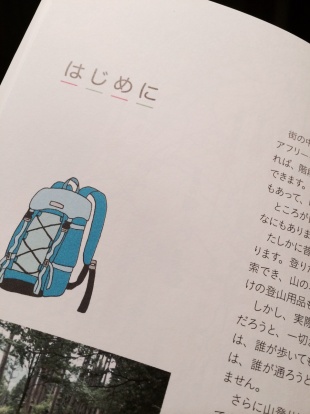 はじめに
街の中
アフリー
れば、階
できます。
もあって、
ところが
なにもありま
たしかに
ります。登りた
索でき、山の
けの登山用品も
しかし、実際
だろうと、一切
は、誰が歩いても
は、誰が通ろうと
ません。
さらに山登り